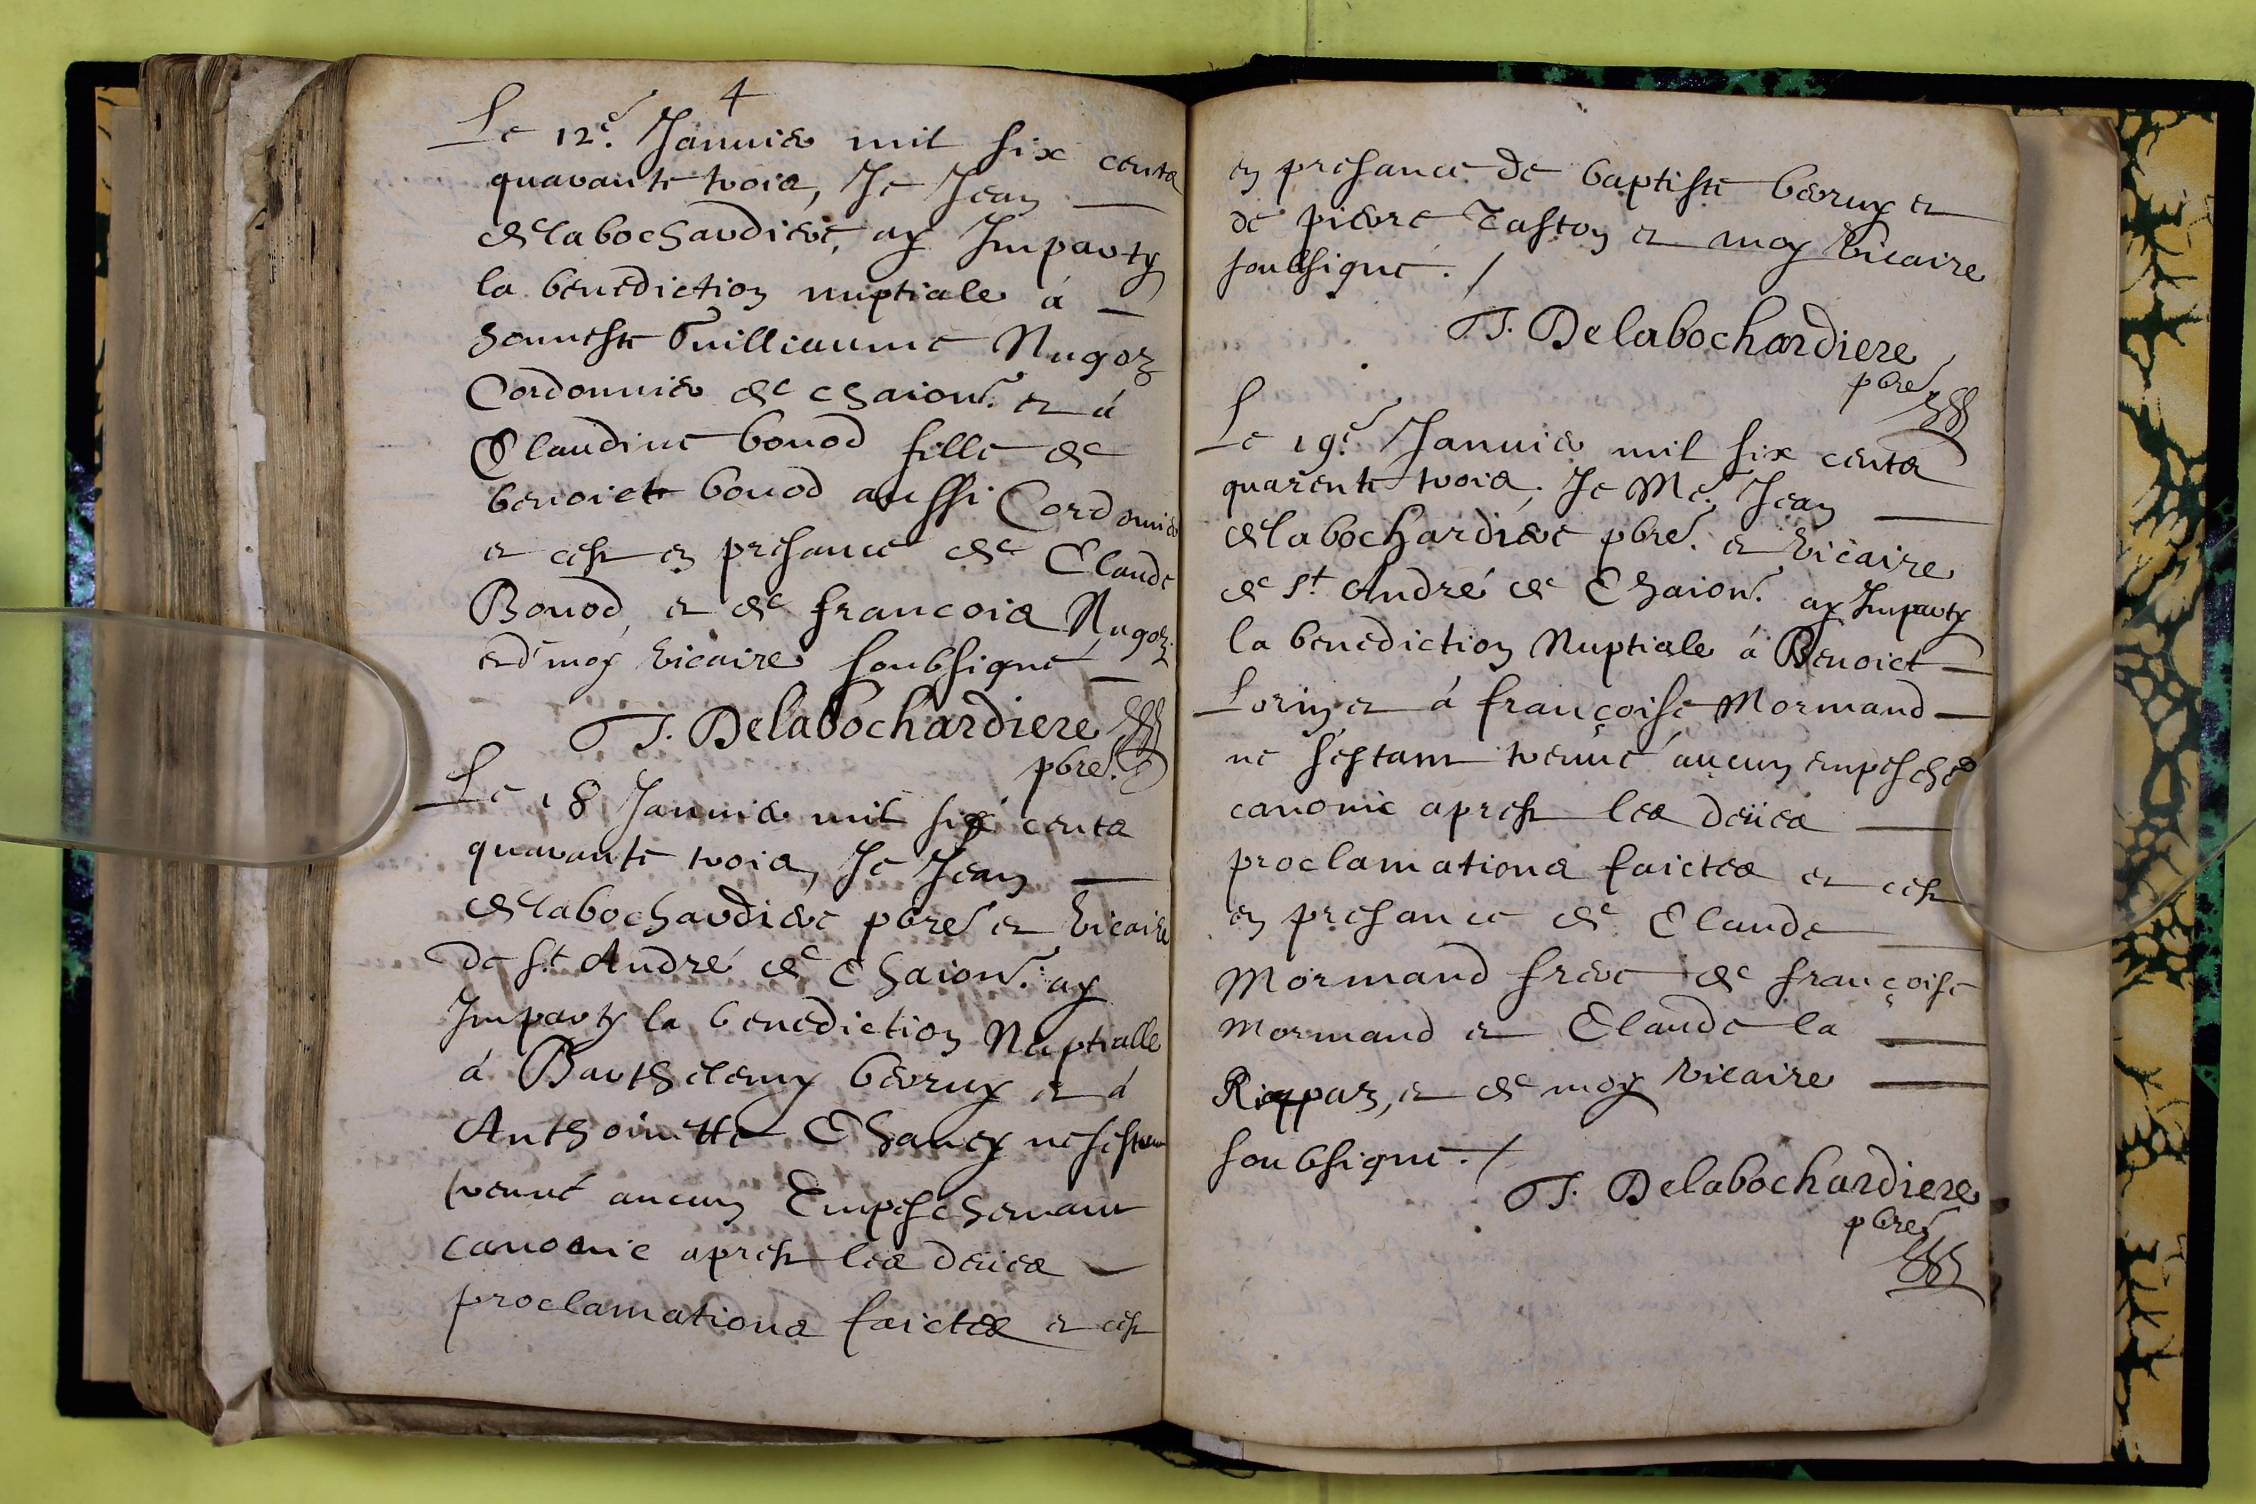 4
Le 12e. Januier mil six cents
quarante trois, Je Jean
delabochardiere, ay Imparty
la benediction nuptiale á
honneste Guilliaume Nugoz
Cordonnier de chaion. et á
Claudine bouod fille de
benoict bouod aussi Cordonnier
et cest en presance de Claude
Bouod, et de francois Nugoz
et moy vicaire soubsigné
J. Delabochardiere
pbre.
Le 18 Januier mil six cents
quarante trois, Je Jean
delabochardiere pbre et vicaire
de St André de Chaion. ay
Imparty la benediction Nuptialle
á Barthelemy berruy et á
Anthoinette Chaney ne sestant
treuué aucun Empeschemant
canonic apres les deües
proclamations faictes et cest
en presance de baptiste berruy et
de pierre Taston et moy vicaire
soubsigné. /
J. Delabochardiere
pbre
Le 19e. Januier mil six cents
quarente trois, Je Me. Jean
delabochardiere pbre. et vicaire
de St. André de Chaion. ay Imparty
la benediction Nuptiale á Benoict
Lorin et á françoise Mormand
ne s'estant treuué aucun empesche
canonic apres les deües
proclamations faictes et cest
en presance de Claude
Mormand frere de françoise
Mormand et Claude la
et de moy vicaire
soubsigné. /
J. Delabochardiere
pbre